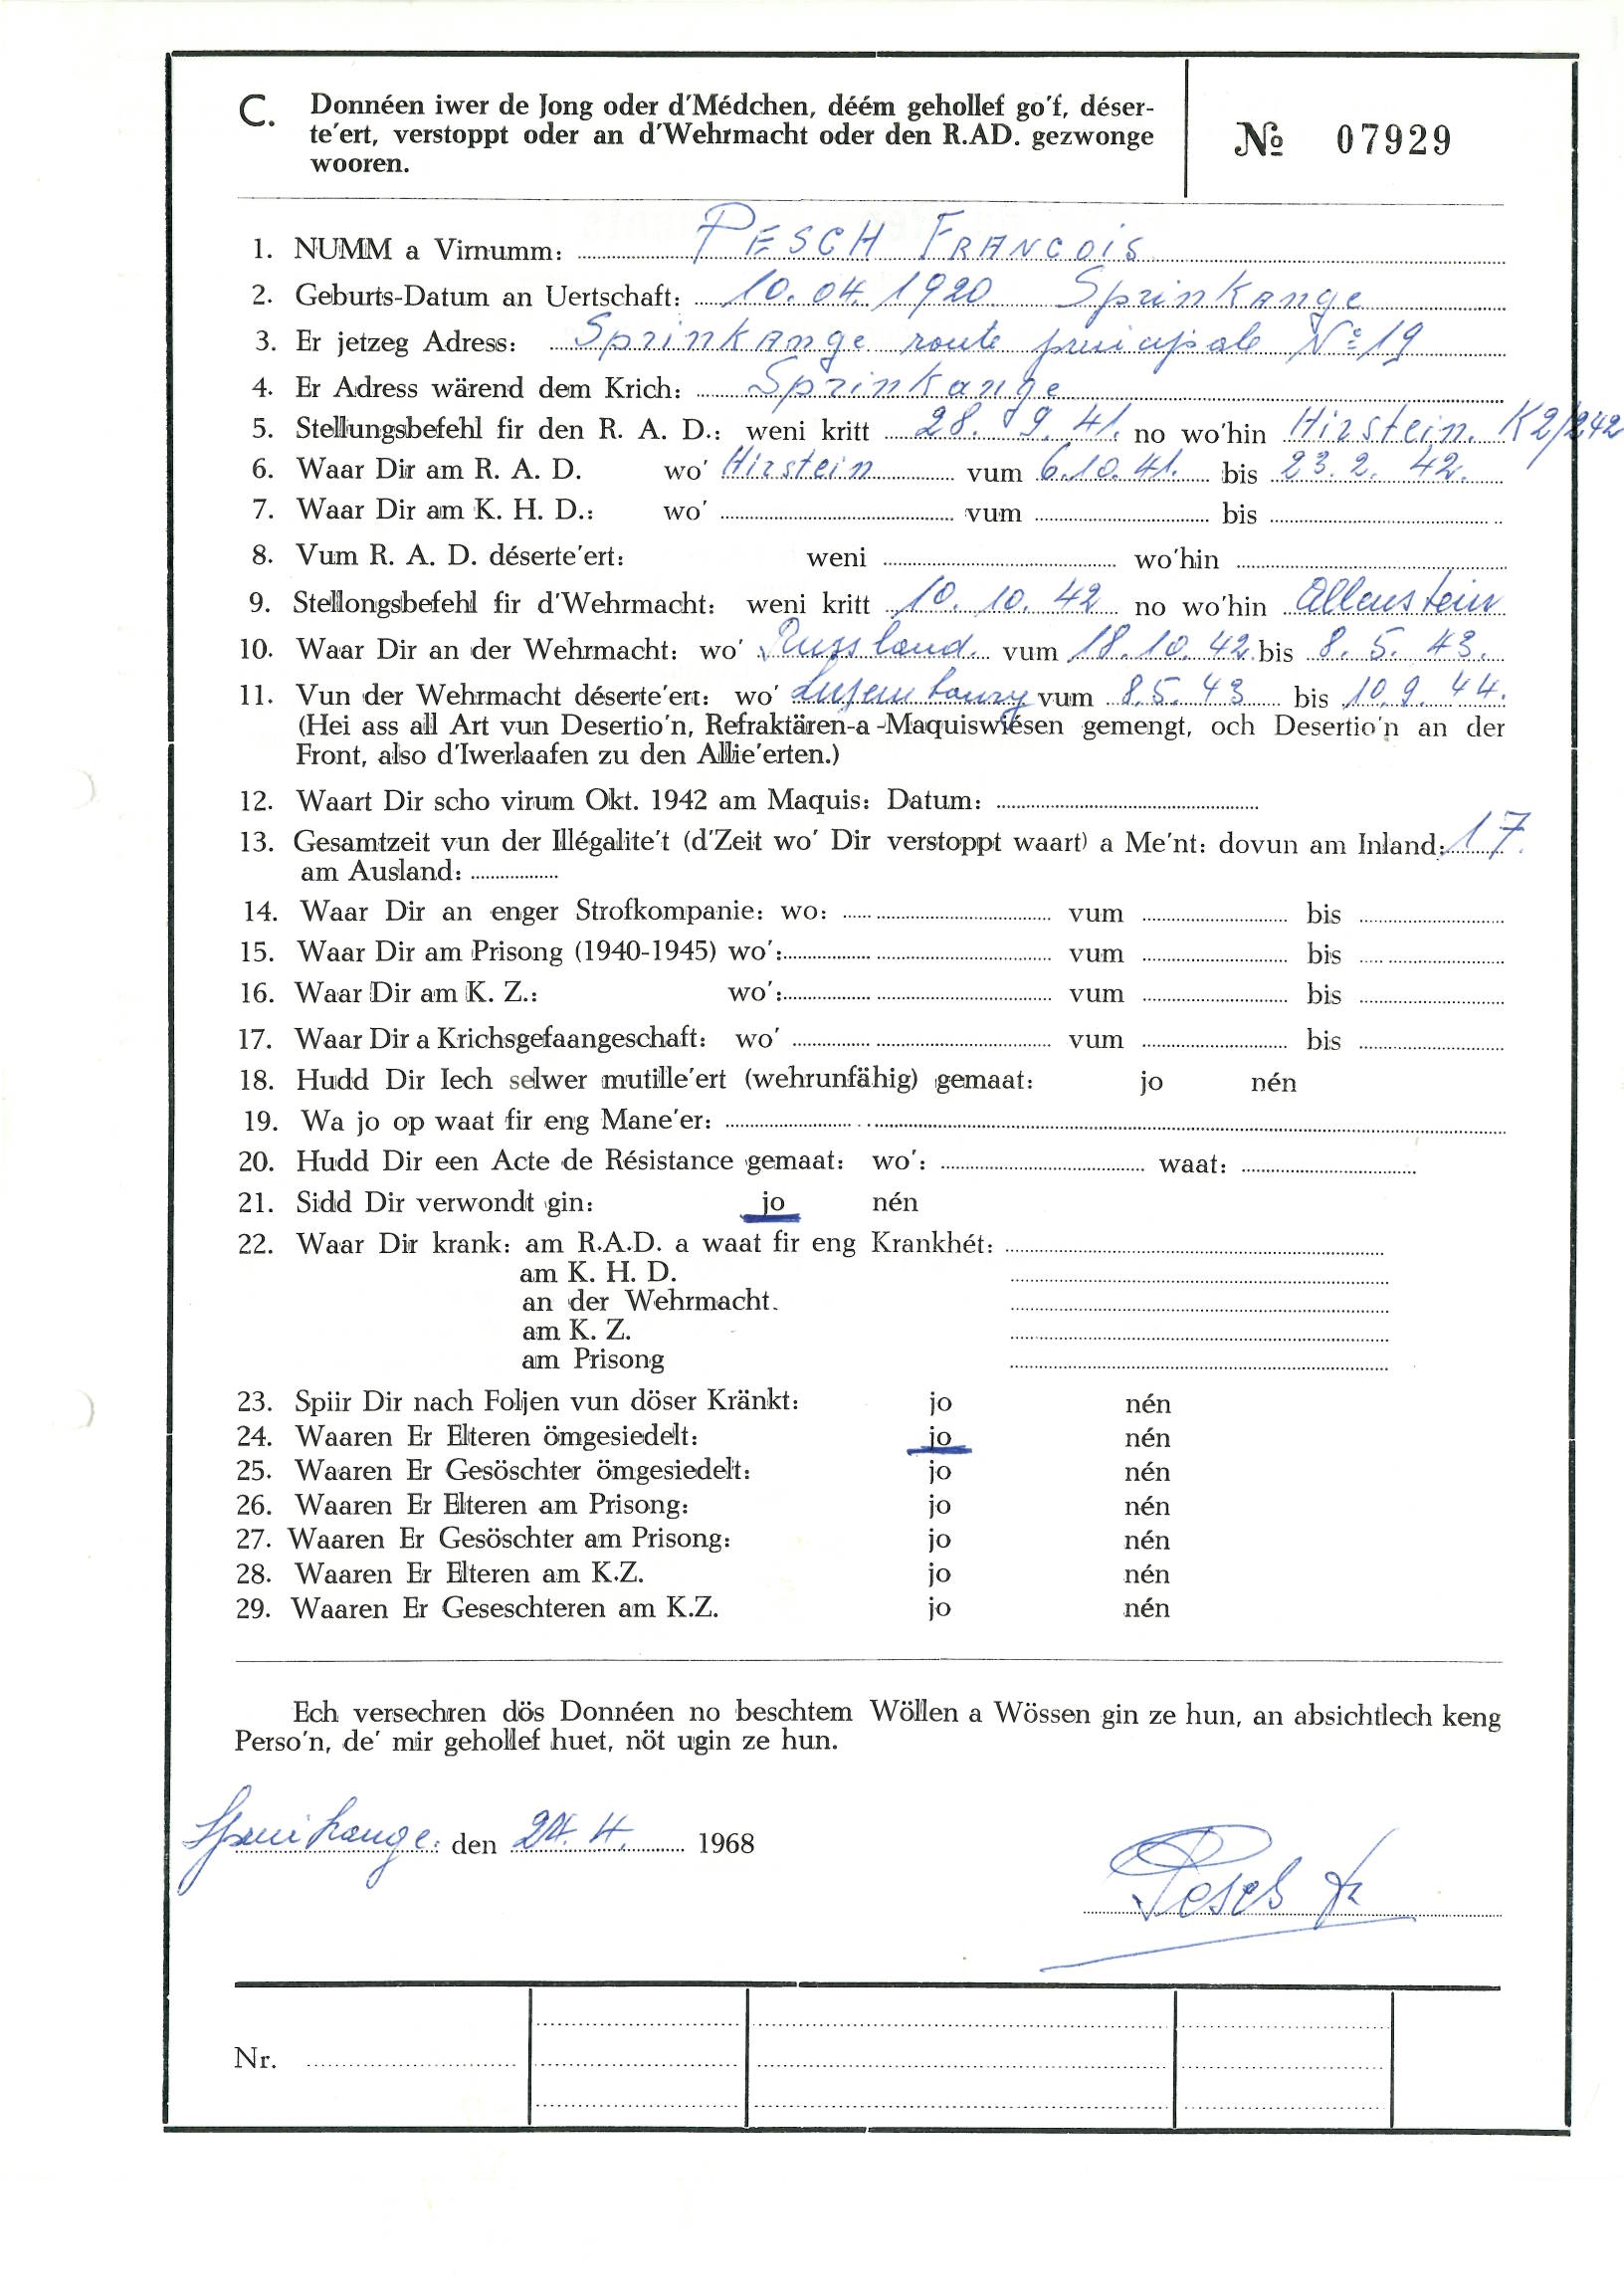 C. Donnéen iwer de Jong oder d'Médchen, déém gehollef go'f, déser-
te'ert, verstoppt oder an d'Wehrmacht oder den R.AD. gezwonge
wooren.
№ 07929
1. NUMM a Virnumm: PESCH FRANCOIS
2. Geburts-Datum an Uertschaft: 10.04.1920 Sprinkange
3. Er jetzeg Adress: Sprinkange route principale N° 19
4. Er Adress wärend dem Krich: Sprinkange
5. Stellungsbefehl fir den R. A. D.: weni kritt 28. 9. 41. no wo'hin Hirstein. K2/242
6. Waar Dir am R. A. D. wo' Hirstein vum 6.10.41. bis 23. 2. 42.
7. Waar Dir am K. H. D.: wo' vum bis
8. Vum R. A. D. déserte'ert: weni wo'hin
9. Stellongsbefehl fir d'Wehrmacht: weni kritt 10. 10. 42 no wo'hin Allenstein
10. Waar Dir an der Wehrmacht: wo' Russland. vum 18.10.42. bis 8. 5. 43.
11. Vun der Wehrmacht déserte'ert: wo' Luxembourg vum 8.5.43 bis 10.9.44.
(Hei ass all Art vun Desertio'n, Refraktären-a-Maquiswiesen gemengt, och Desertio'n an der
Front, also d'Iwerlaafen zu den Allie'erten.)
12. Waart Dir scho virum Okt. 1942 am Maquis: Datum:
13. Gesamtzeit vun der Illégalite't (d'Zeit wo' Dir verstoppt waart) a Me'nt: dovun am Inland: 17.
am Ausland:
14. Waar Dir an enger Strofkompanie: wo: vum bis
15. Waar Dir am Prisong (1940-1945) wo': vum bis
16. Waar Dir am K. Z.: wo': vum bis
17. Waar Dir a Krichsgefaangeschaft: wo' vum bis
18. Hudd Dir Iech selwer mutille'ert (wehrunfähig) gemaat: jo nén
19. Wa jo op waat fir eng Mane'er:
20. Hudd Dir een Acte de Résistance gemaat: wo': waat:
21. Sidd Dir verwondt gin: jo nén
22. Waar Dir krank: am R.A.D. a waat fir eng Krankhét:
am K. H. D.
an der Wehrmacht.
am K. Z.
am Prisong
23. Spiir Dir nach Foljen vun döser Kränkt: jo nén
24. Waaren Er Elteren ömgesiedelt: jo nén
25. Waaren Er Gesöschter ömgesiedelt: jo nén
26. Waaren Er Elteren am Prisong: jo nén
27. Waaren Er Gesöschter am Prisong: jo nén
28. Waaren Er Elteren am K.Z. jo nén
29. Waaren Er Geseschteren am K.Z. jo nén
Ech versechren dös Donnéen no beschtem Wöllen a Wössen gin ze hun, an absichtlech keng
Perso'n, de' mir gehollef huet, nöt ugin ze hun.
Sprinkange. den 24. 4. 1968
Pesch Fr
Nr.